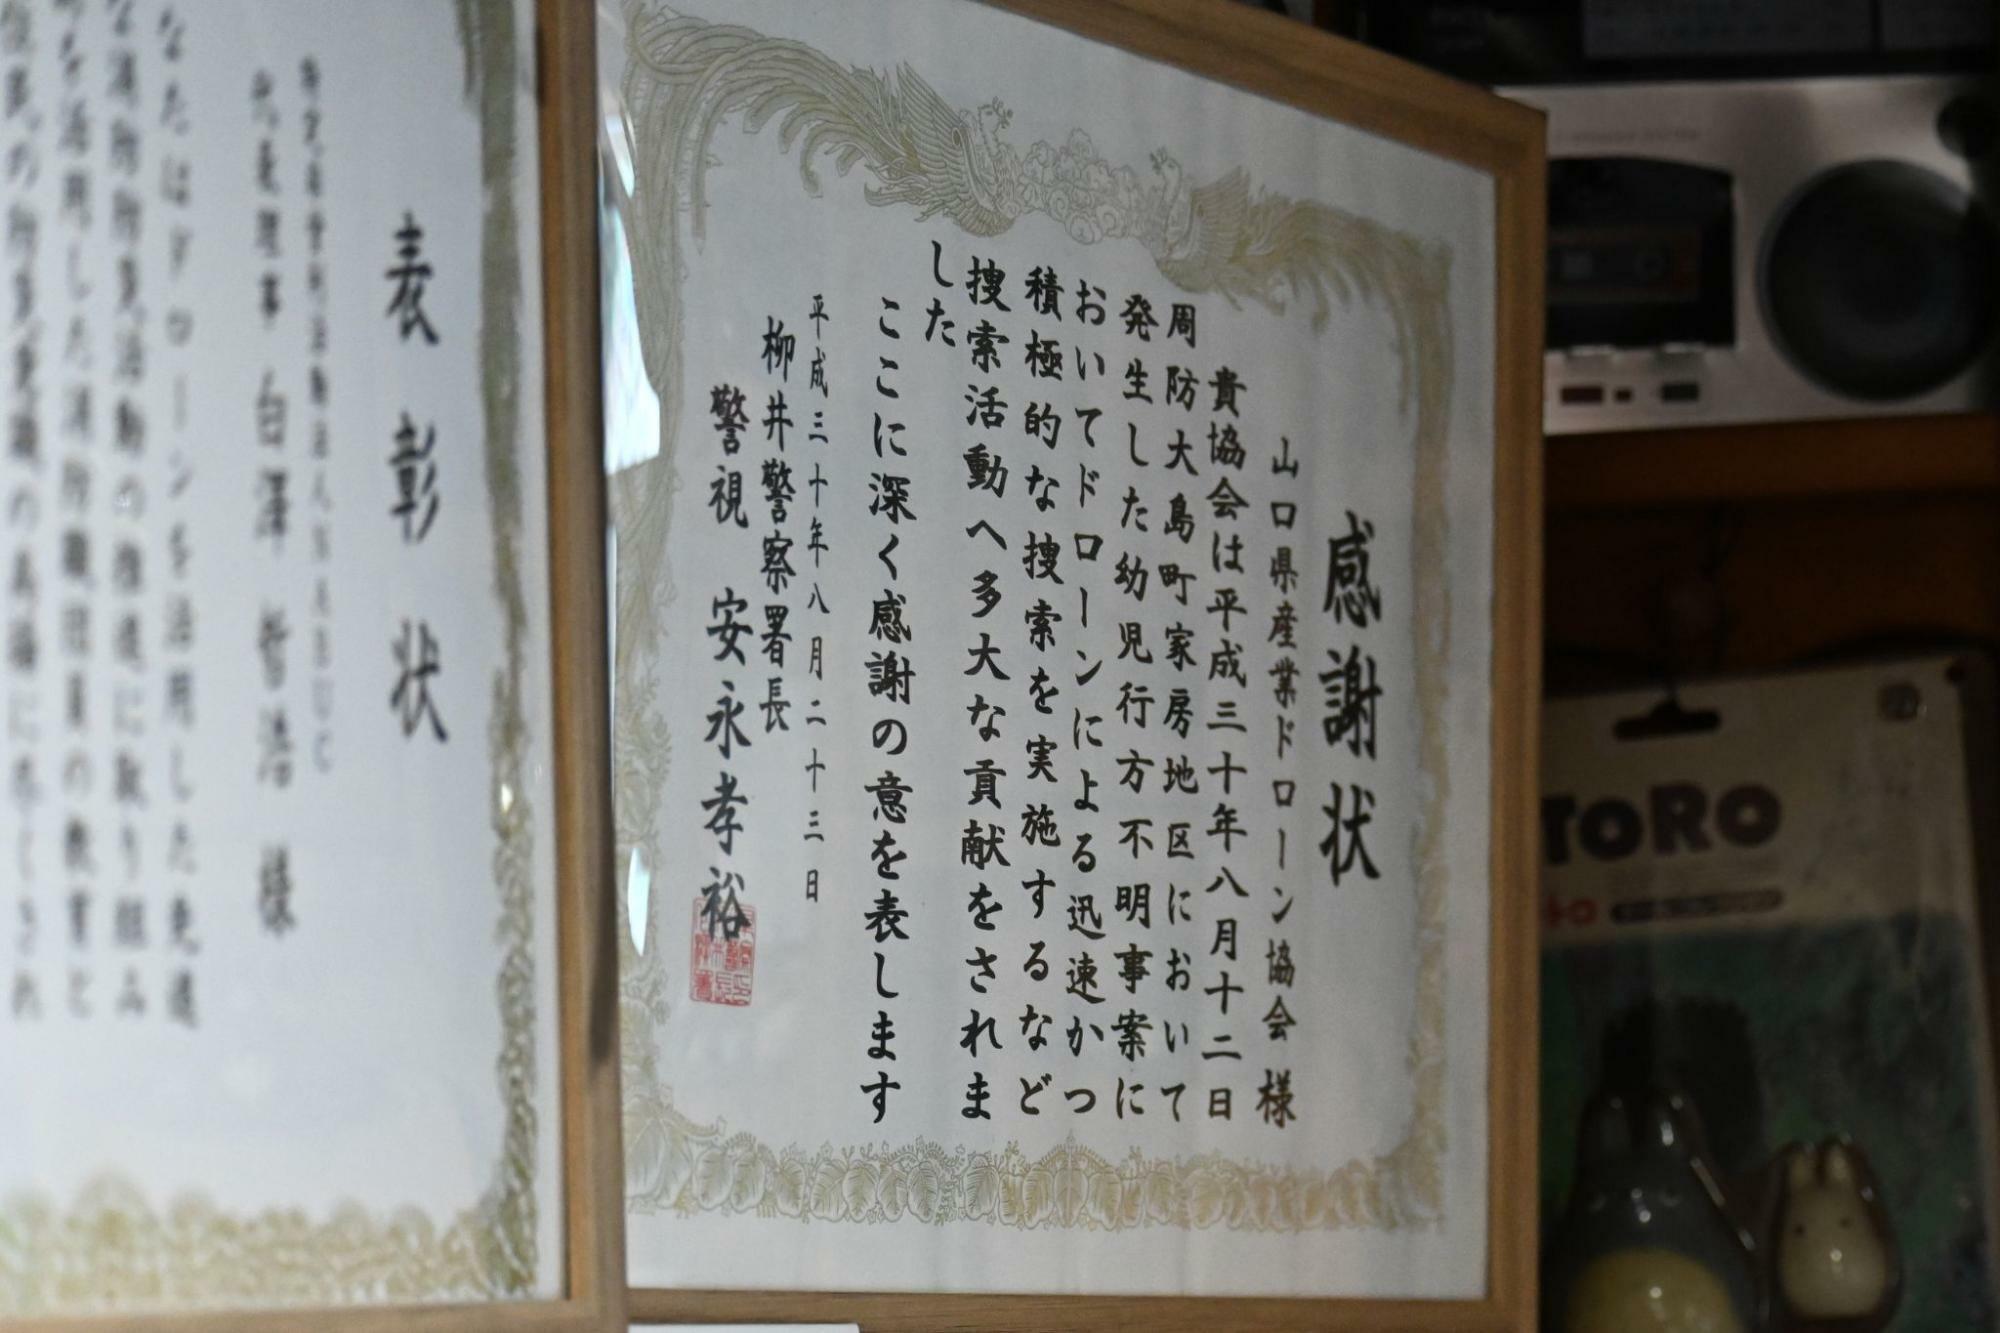 感謝状
山口県産業ドローン協会 様
貴協会は平成三十年八月十二日
周防大島町家房地区において
発生した幼児行方不明事案に
おいてドローンによる迅速かつ
積極的な捜索を実施するなど
捜索活動へ多大な貢献をされま
した
ここに深く感謝の意を表します
平成三十年八月二十三日
柳井警察署長
警視 安永孝裕
表彰状
代表理事 白澤 哲浩 様
なたはドローンを活用した先進
な消防防災活動の推進に取り組み
を活用した消防職団員の教育と
TORO